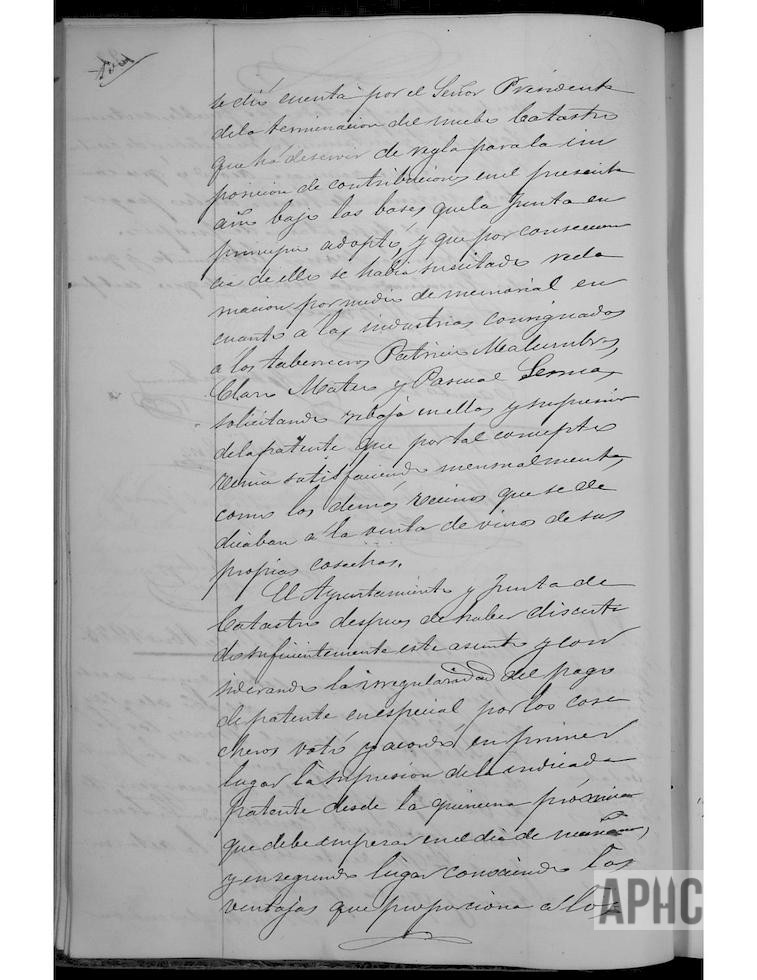 se dió cuenta por el Señor Presidente
de la terminacion del nuebo Catastro
que há de servir de regla para la im
posicion de contribuciones en el presente
año bajo las bases que la Junta en
principio adoptó, y que por consecuen
cia de ello se habia suscitado recla
macion por medio de memorial en
cuanto a las industrias consignadas
a los taberneros Patricio Malumbres,
Claro Mateo y Pascual Lesma,
solicitando rebaja en ellas y supresion
de la patente que por tal concepto
venia satisfaciendo mensualmente,
como los demas vecinos que se de
dicaban a la venta de vinos de sus
propias cosechas.
El Ayuntamiento y Junta de
Catastro despues de haber discuti
do suficientemente este asunto y con
siderando la irregularidad del pago
de patente en especial por los cose
cheros votó y acordó en primer
lugar la supresion de la indicada
patente desde la quincena próxima
que debe empezar en el dia de mañana,
y en segundo lugar conociendo las
ventajas que proporciona a los
APHC